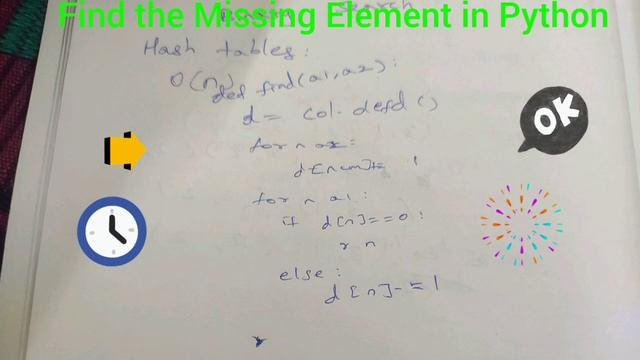 Find the Missing Element in Python
Search
Hash tables:
O(n)
def find(a1, a2):
d = col. defd ()
for n a2:
d[num]+= 1
for n a1:
if d[n]==0:
r n
else:
d[n]-=1
OK